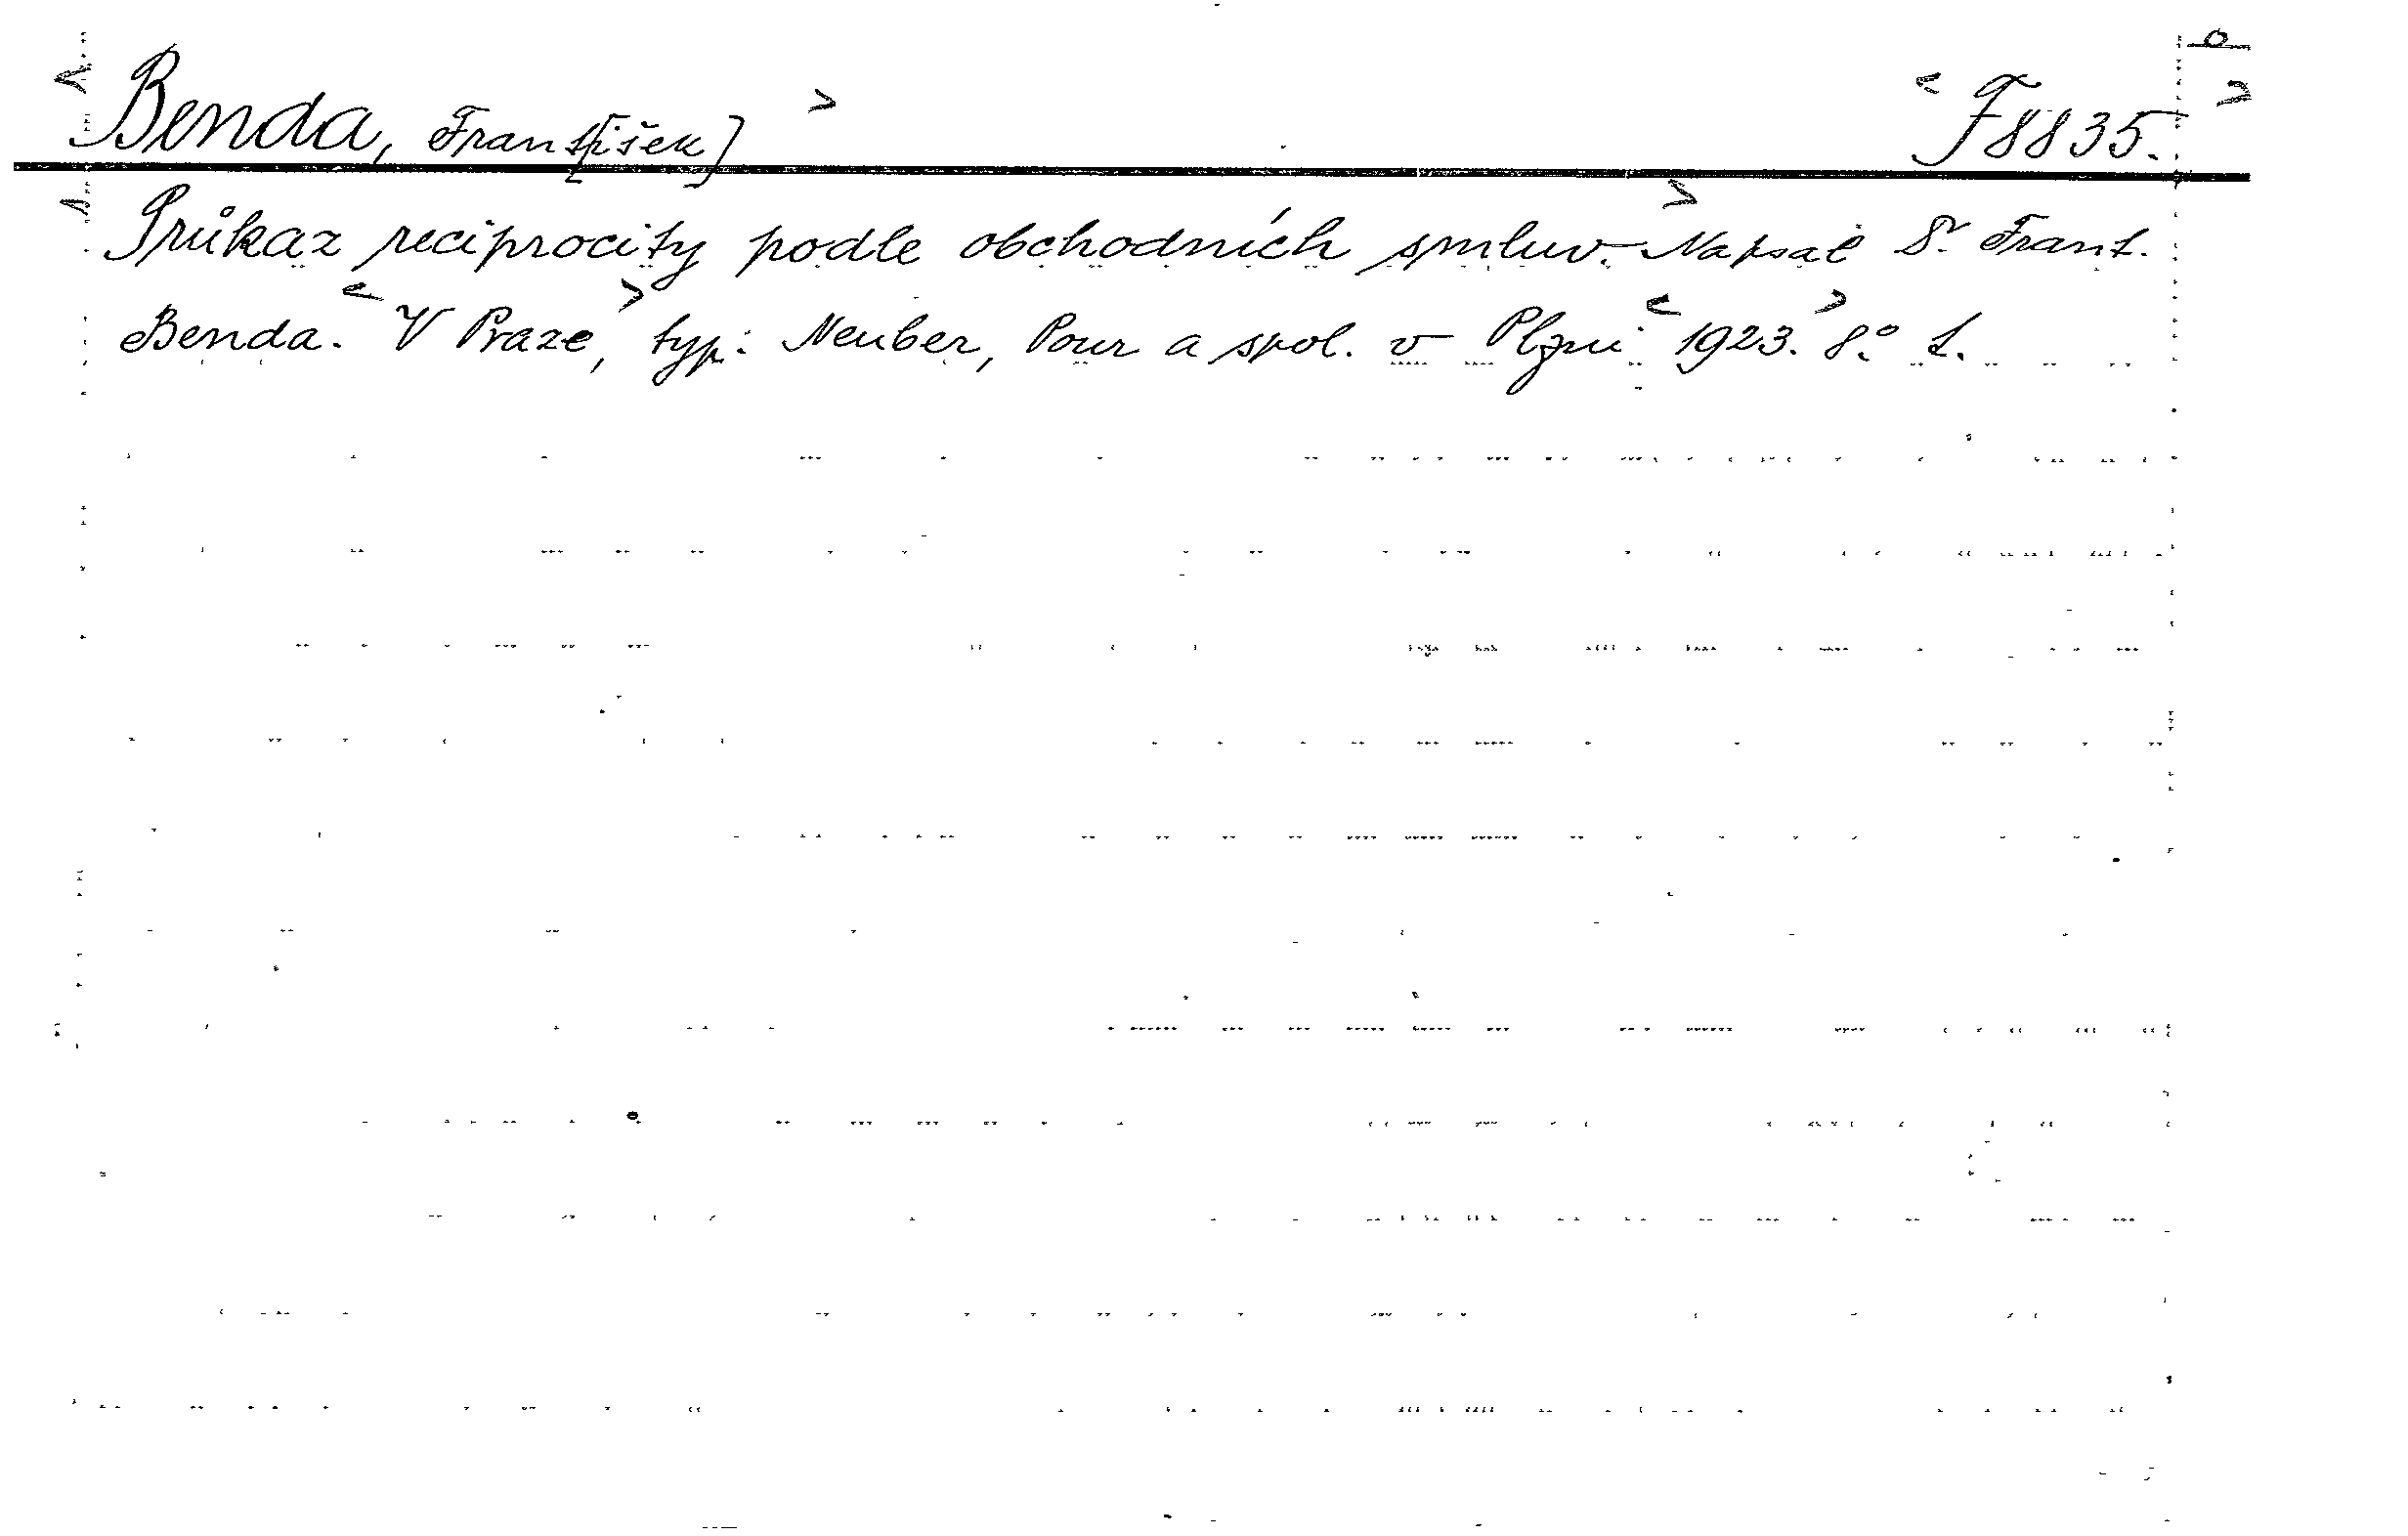 Benda, Frant[išek] F 8835.
Průkaz reciprocity podle obchodních smluv. Napsal Dr. Frant.
Benda. V Praze, typ: Neuber, Pour a spol. v Plzni 1923. 8.° 1.